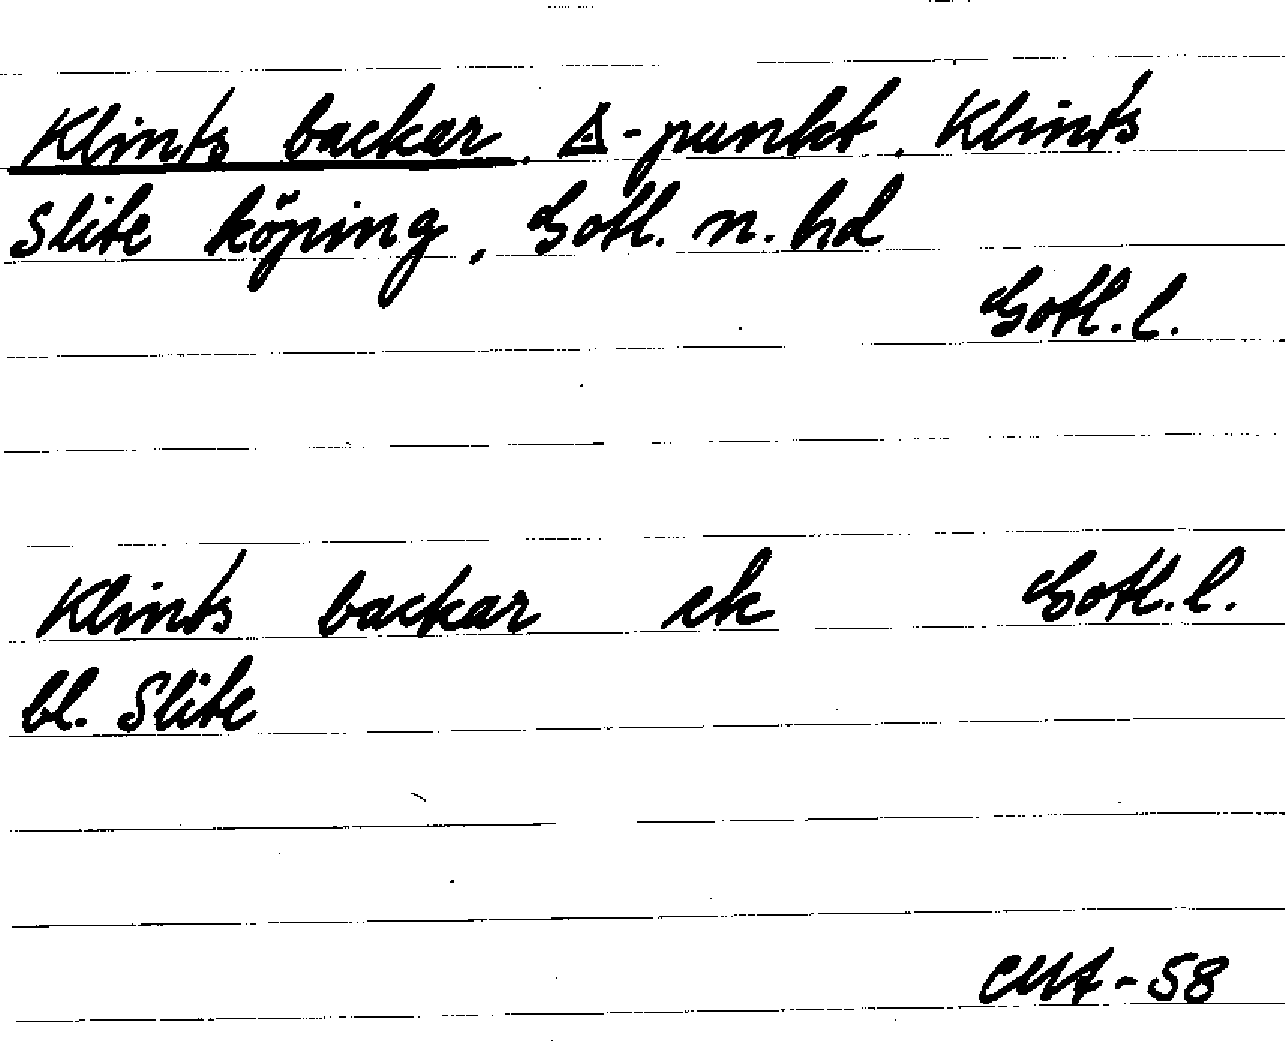 Klints backar, △-punkt, Klints
Slite köping, Gotl. n. hd
Gotl. l.
Klints backar ek Gotl. l.
bl. Slite
-58